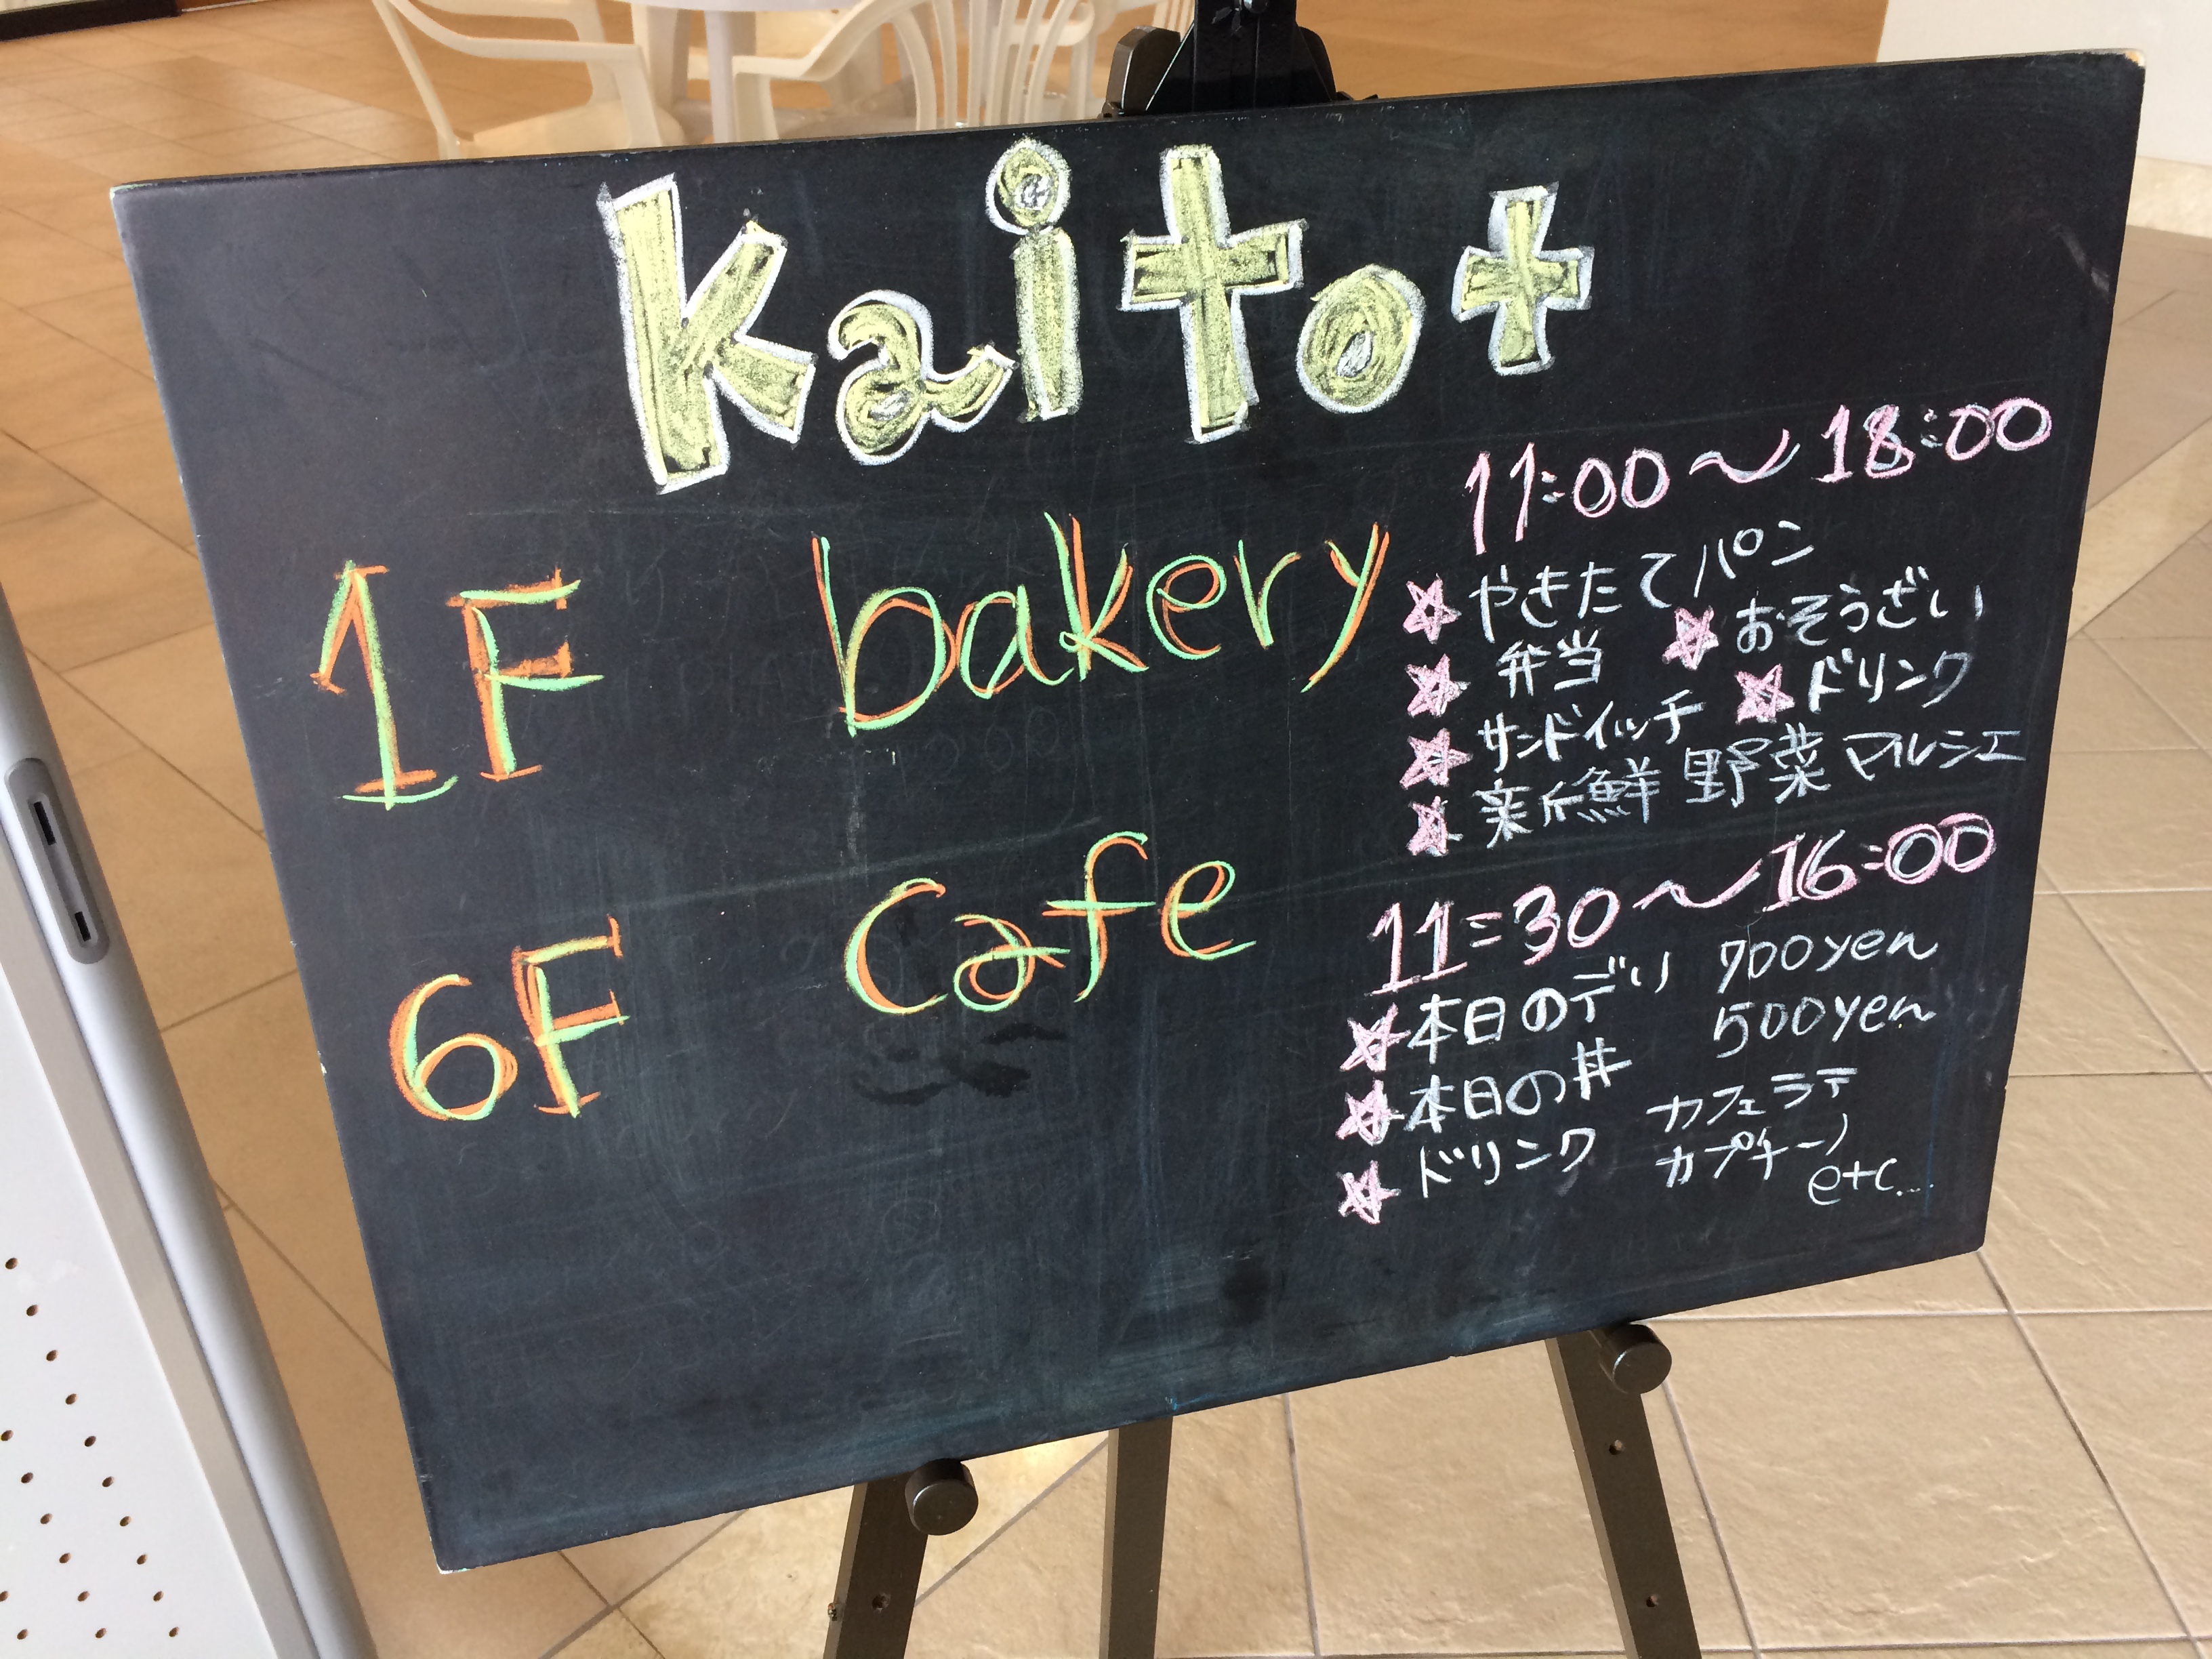 Kaito+
1F bakery 11:00～18:00
☆やきたてパン
☆弁当 ☆おそうざい
☆サンドイッチ ☆ドリンク
☆新鮮野菜マルシェ
6F Cafe 11:30～16:00
☆本日のデリ 700yen
☆本日の丼 500yen
☆ドリンク カフェラテ
カプチーノ
etc...